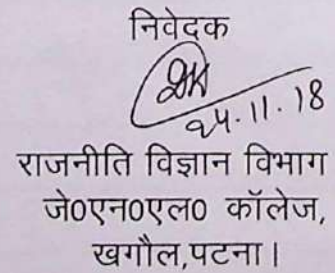 निवेदक
24.11.18
राजनीति विज्ञान विभाग
जे0एन0एल0 कॉलेज,
खगौल,पटना।